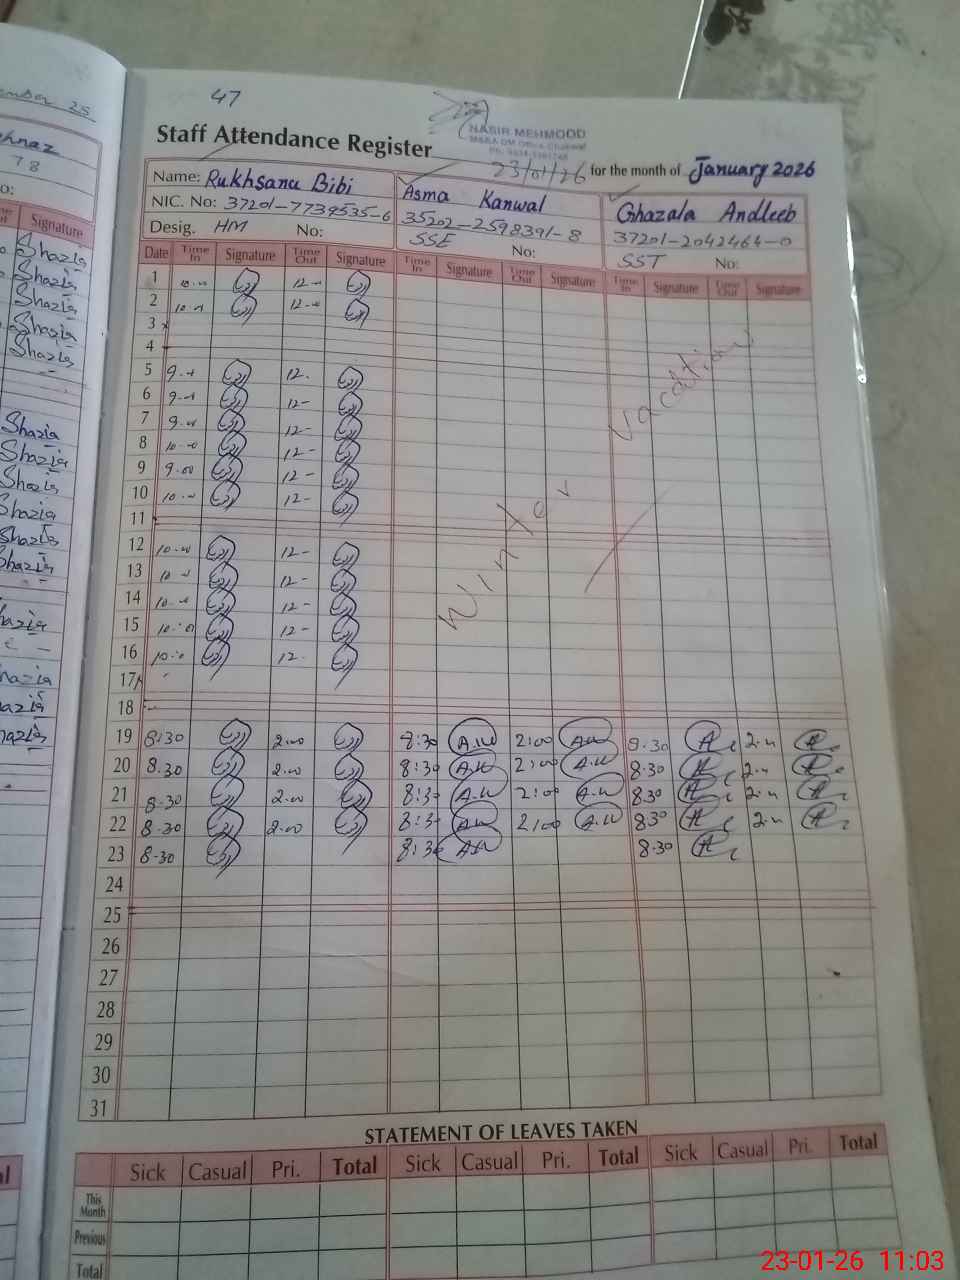 47
NASIR MEHMOOD
Staff Attendance Register
23/01/26 for the month of January 2026
Name: Rukhsana Bibi Asma Kanwal Ghazala Andleeb
NIC. No: 37201-7739535-6 35202-2598391-8 37201-2042464-0
Desig. HM No: SSE No: SST No:
Date Time In Signature Time Out Signature Time In Signature Time Out Signature Time In Signature Time Out Signature
1 10-00 12-00
2 10-00 12-00
3
4
5 9-00 12-
6 9-00 12-
7 9-00 12-
8 10-00 12-
9 9-00 12-
10 10-00 12-
11
12 10-00 12-
13 10-00 12-
14 10-00 12-
15 10-00 12-
16 10-00 12-
17
18
Winter Vacation
19 8:30 2-00 8:30 A.K 2:00 A.K 8-30 2-00
20 8-30 2-00 8:30 A.K 2:00 A.K 8-30 2-00
21 8-30 2-00 8:30 A.K 2:00 A.K 8-30 2-00
22 8-30 2-00 8:30 A.K 2:00 A.K 8-30 2-00
23 8-30 8:30 A.K 8-30
24
25
26
27
28
29
30
31
STATEMENT OF LEAVES TAKEN
Sick Casual Pri. Total Sick Casual Pri. Total Sick Casual Pri. Total
This Month
Previous
Total
25
78
Signature
Shazia
Shazia
Shazia
Shazia
Shazia
Shazia
Shazia
Shazia
Shazia
Shazia
Shazia
23-01-26 11:03